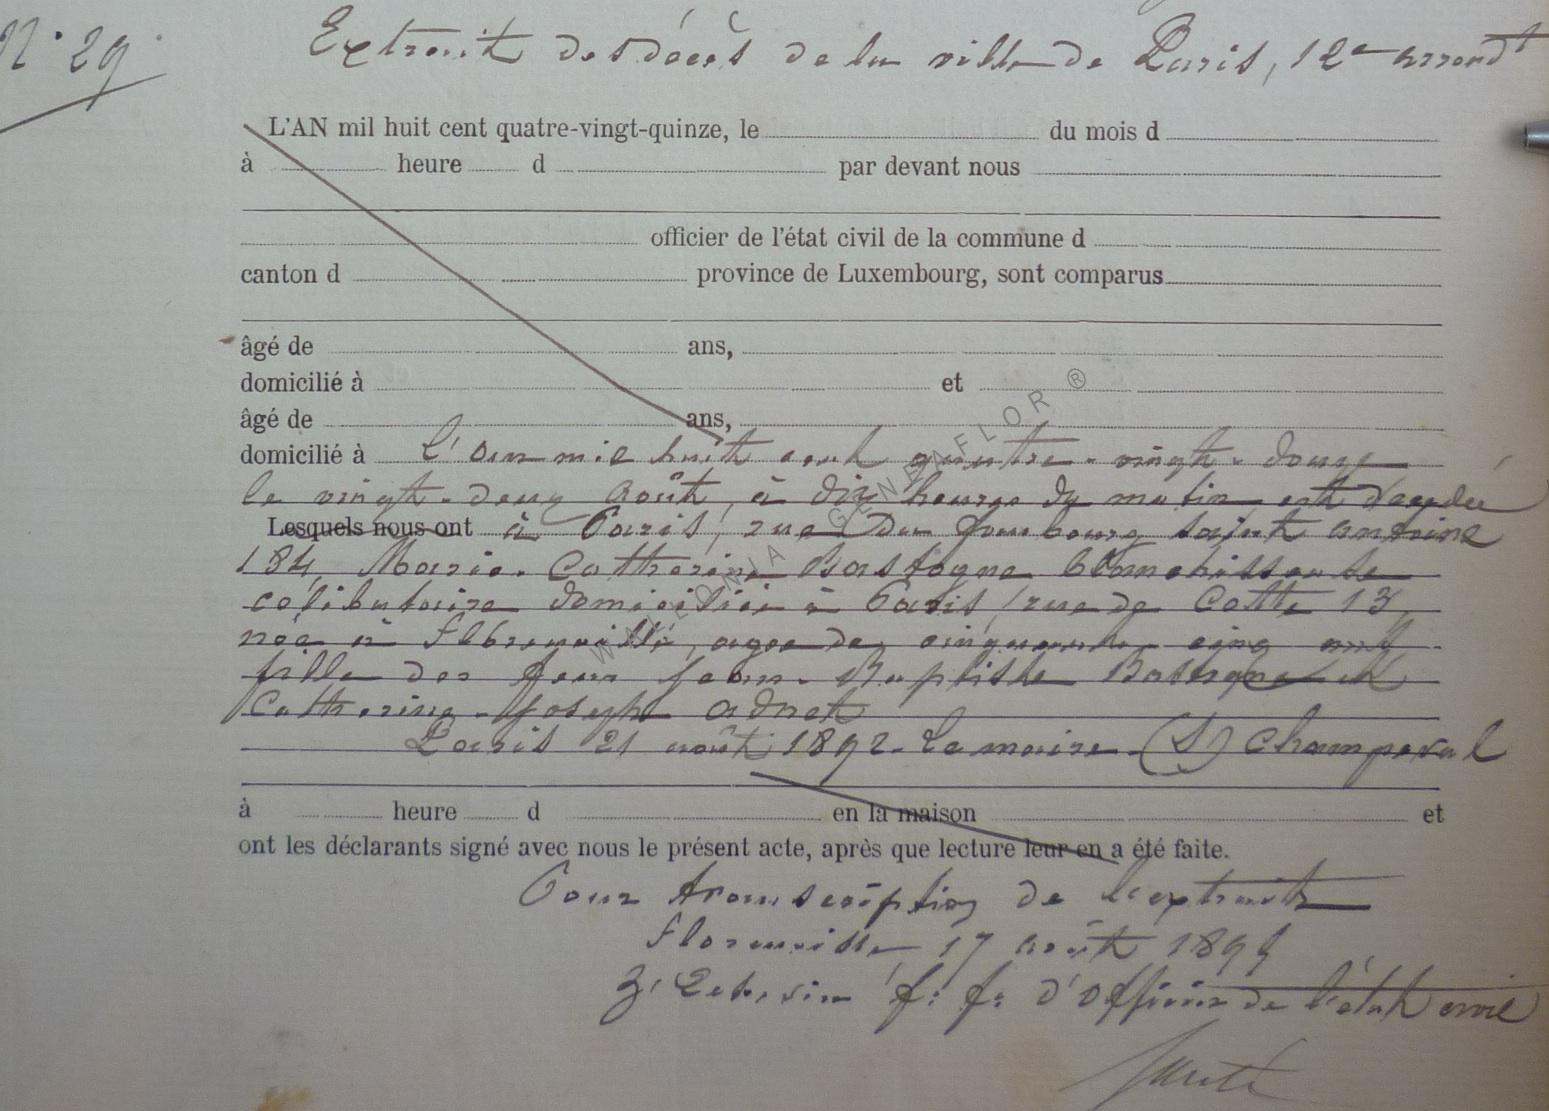 N° 29.
Extrait des décès de la ville de Paris, 12e arrondt
L'AN mil huit cent quatre-vingt-quinze, le du mois d
à heure d par devant nous
officier de l'état civil de la commune d
canton d province de Luxembourg, sont comparus
âgé de ans,
domicilié à et
âgé de ans,
domicilié à L'an mil huit cent quatre-vingt-douze
le vingt-deux août, à dix heures du matin est décédée
Lesquels nous ont à Paris, rue du faubourg saint antoine
184, Marie-Catherine Bastogne blanchisseuse
célibataire domiciliée à Paris, rue de Cotte 13,
née à Florenville, agee de cinquante cinq ans
fille des feus Jean-Baptiste Bastogne et
Catherine-Joseph adnet
Paris 21 août 1892. Le maire (S) Champeval
à heure d en la maison et
ont les déclarants signé avec nous le présent acte, après que lecture leur en a été faite.
Pour transcription de l'extrait
Florenville 17 août 1895
f: f: d'Officier de l'état civil
WALLONIA GENEAFLOR ®